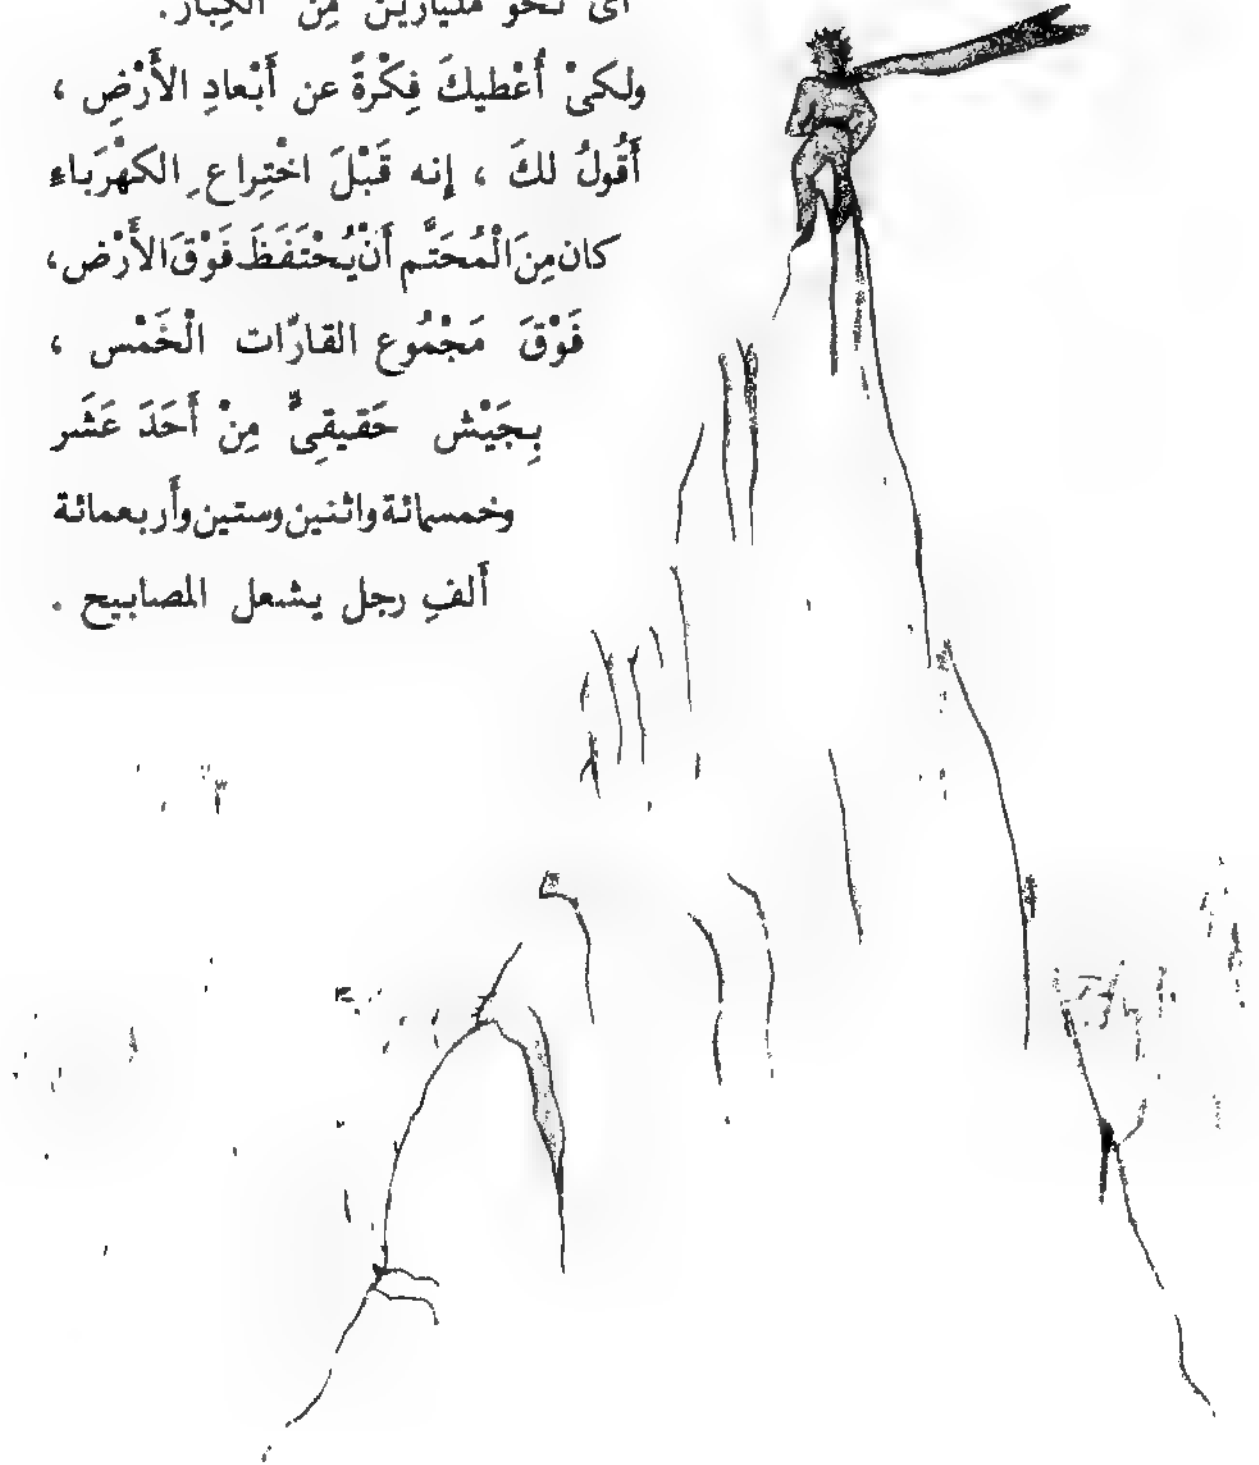 أى نحو مليارين مِن الكِبار.
ولكىْ أُعْطيكَ فِكْرةً عن أَبْعادِ الأَرْضِ ،
أَقُولُ لكَ ، إنه قَبْلَ اخْتِراعِ الكهْرَباءِ
كان مِنَ الْمُحَتَّم أَنْ يُحْتَفَظَ فَوْقَ الأَرْض ،
فَوْقَ مَجْمُوع القارّات الْخَمْس ،
بِجَيْش حَقيقِىٍّ مِنْ أَحَدَ عَشَر
وخمسمائة واثنين وستين وأربعمائة
ألفِ رجل يشعل المصابيح .